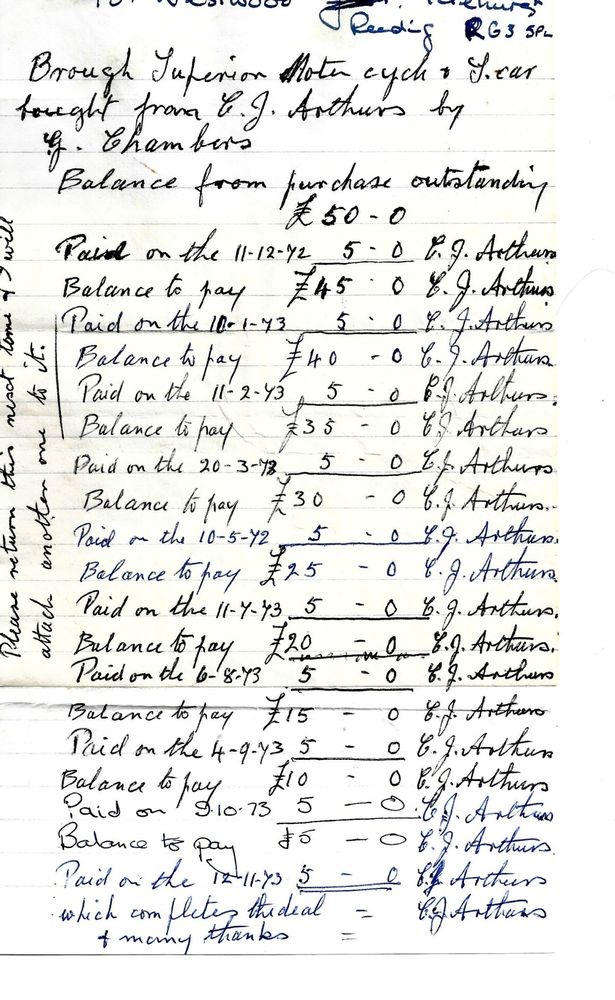 Westwood
Reading RG3 5PL
Brough Superior Motor cycle & S.car
bought from C. J. Arthurs by
G. Chambers
Balance from purchase outstanding
£50 - 0
Paid on the 11-12-72 5 - 0 C. J. Arthurs
Balance to pay £45 - 0 C. J. Arthurs
Paid on the 10-1-73 5 - 0 C. J. Arthurs
Balance to pay £40 - 0 C. J. Arthurs.
Paid on the 11-2-73 5 - 0 C. J. Arthurs.
Balance to pay £35 - 0 C. J. Arthurs
Paid on the 20-3-73 5 - 0 C. J. Arthurs
Balance to pay £30 - 0 C. J. Arthurs.
Paid on the 10-5-72 5 - 0 C. J. Arthurs.
Balance to pay £25 - 0 C. J. Arthurs.
Paid on the 11-7-73 5 - 0 C. J. Arthurs.
Balance to pay £20 - 0 C. J. Arthurs.
Paid on the 6-8-73 5 - 0 C. J. Arthurs
Balance to pay £15 - 0 C. J. Arthurs
Paid on the 4-9-73 5 - 0 C. J. Arthurs
Balance to pay £10 - 0 C. J. Arthurs
Paid on 9.10.73 5 - 0 C. J. Arthurs
Balance to pay £5 - 0 C. J. Arthurs.
Paid on the 12-11-73 5 - 0 C. J. Arthurs
which completes the deal = C J Arthurs
& many thanks =
Please return this next time & I will
attach another one to it.